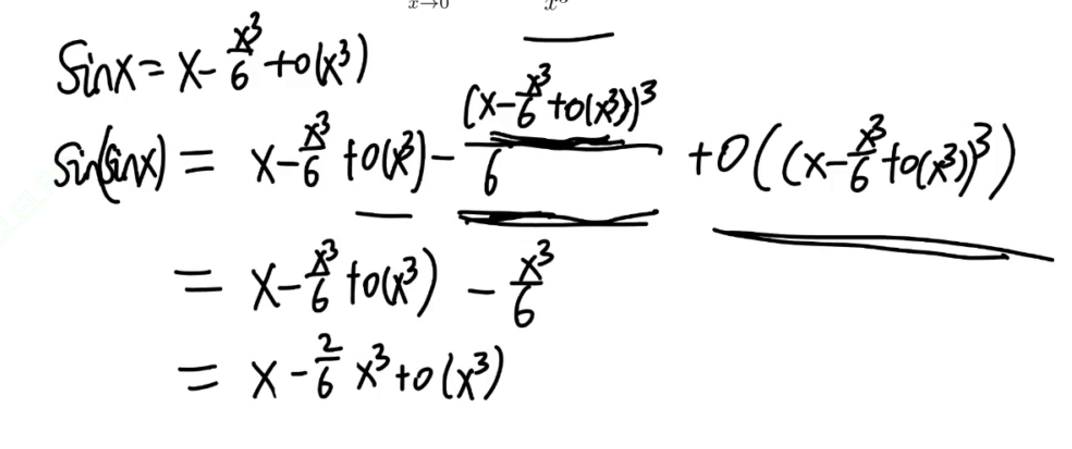 x→0
sinx = x - x³/6 + o(x³)
sin(sinx) = x - x³/6 + o(x³) - (x - x³/6 + o(x³))³/6 + o((x - x³/6 + o(x³))³)
= x - x³/6 + o(x³) - x³/6
= x - 2/6 x³ + o(x³)